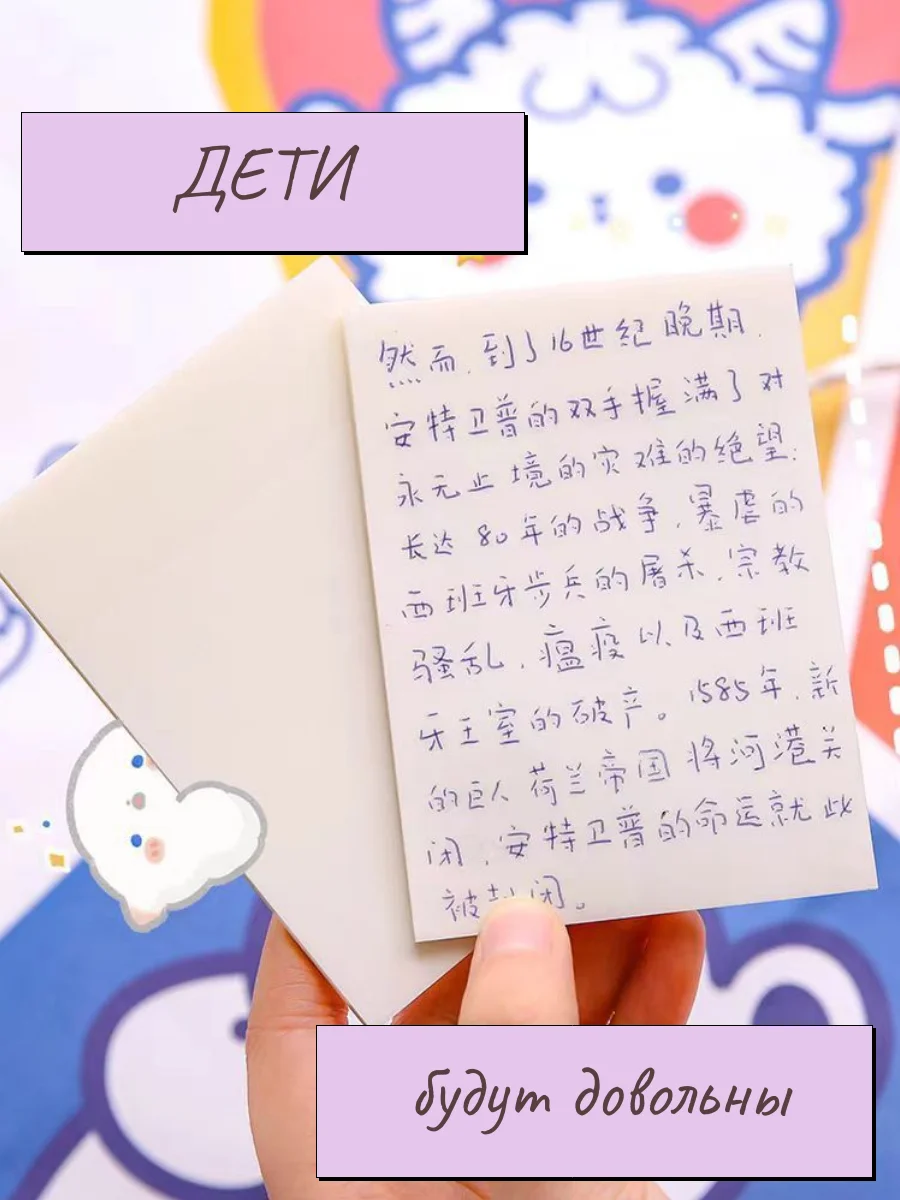 ДЕТИ
然而，到了16世纪晚期，
安特卫普的双手握满了对
永无止境的灾难的绝望：
长达80年的战争，暴虐的
西班牙步兵的屠杀，宗教
骚乱，瘟疫以及西班
牙王室的破产。1585年，新
的巨人荷兰帝国将河港关
闭，安特卫普的命运就此
被 闭。
будут довольны